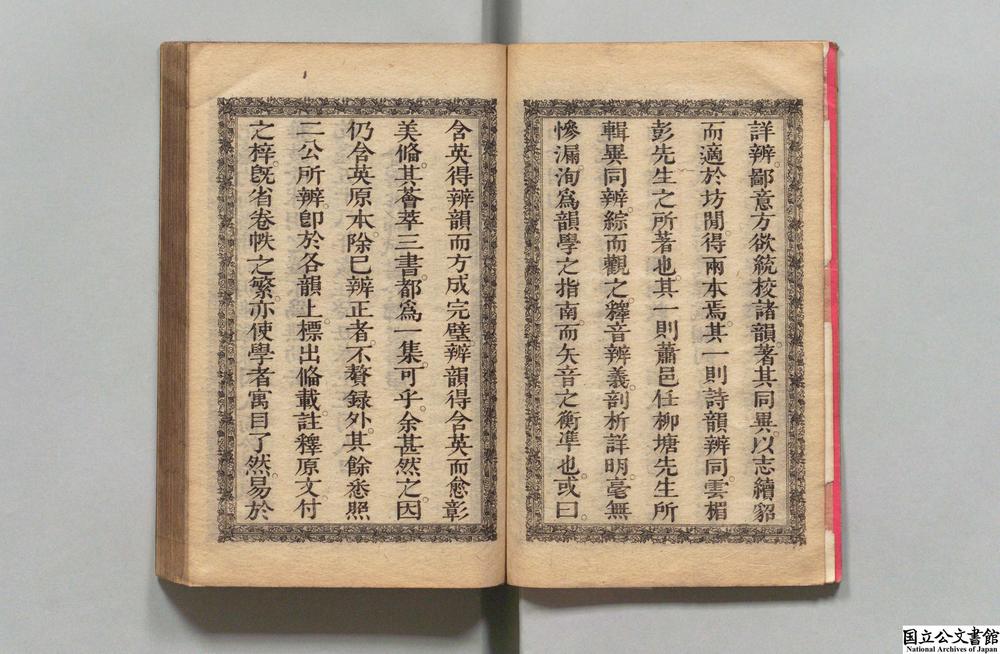 詳辨鄙意方欲統校諸韻著其同異以志續貂
而適於坊閒得兩本焉其一則詩韻辨同雲楣
彭先生之所著也其一則蕭邑任柳塘先生所
輯異同辨綜而觀之釋音辨義剖析詳明毫無
慘漏洵爲韻學之指南而矢音之衡準也或曰
含英得辨韻而方成完璧辨韻得含英而愈彰
美俻其薈萃三書都爲一集可乎余甚然之因
仍含英原本除巳辨正者不贅録外其餘悉照
二公所辨卽於各韻上標出俻載註釋原文付
之梓旣省卷帙之繁亦使學者寓目了然易於
国立公文書館
National Archives of Japan